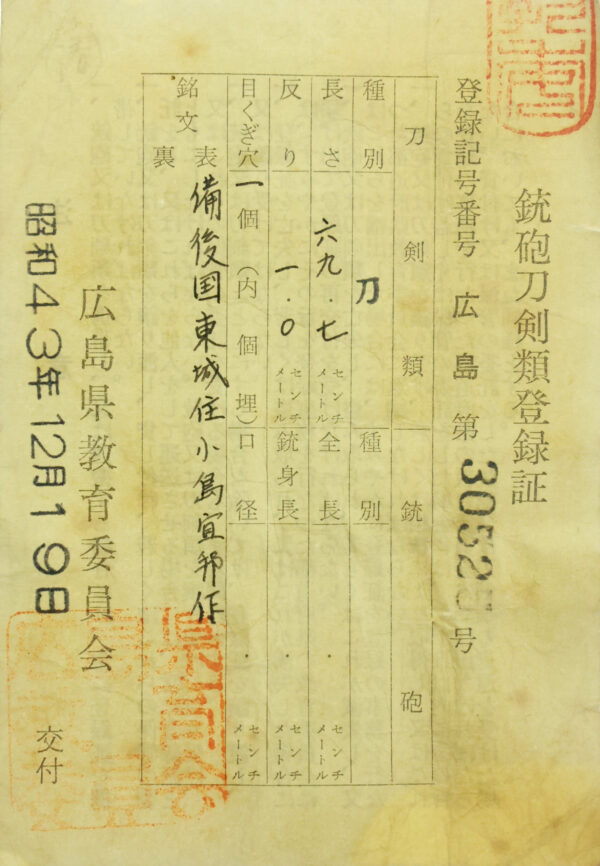 銃砲刀剣類登録証
登録記号番号 広島 第 3052 号
刀剣類 銃砲
種別 刀 種別
長さ 六九・七 センチメートル 全長 ・ センチメートル
反り 一・〇 センチメートル 銃身長 ・ センチメートル
目くぎ穴 一個（内 個埋） 口径 ・ センチメートル
銘文 表 備後国東城住小島宜邦作
裏
広島県教育委員会
昭和43年12月19日 交付